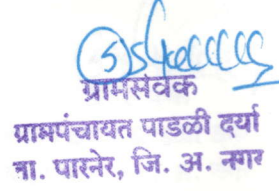 ग्रामसेवक
ग्रामपंचायत पाडळी दर्या
ता. पारनेर, जि. अ. नगर